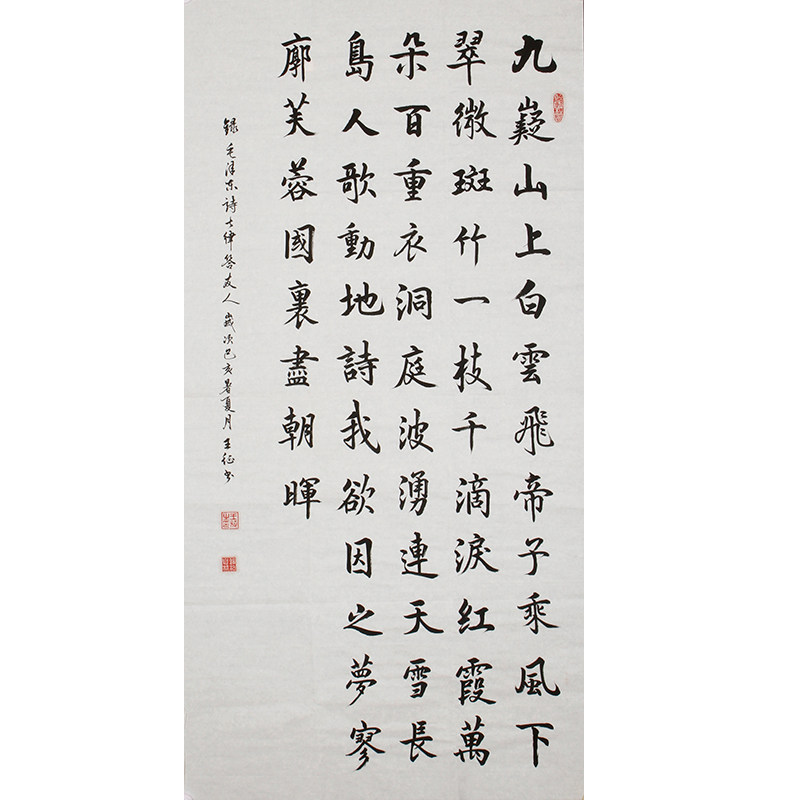 九嶷山上白雲飛帝子乘風下
翠微斑竹一枝千滴淚紅霞萬
朵百重衣洞庭波湧連天雪長
島人歌動地詩我欲因之夢寥
廓芙蓉國裏盡朝暉
録毛澤东詩七律答友人歲次己亥暑夏月王征书